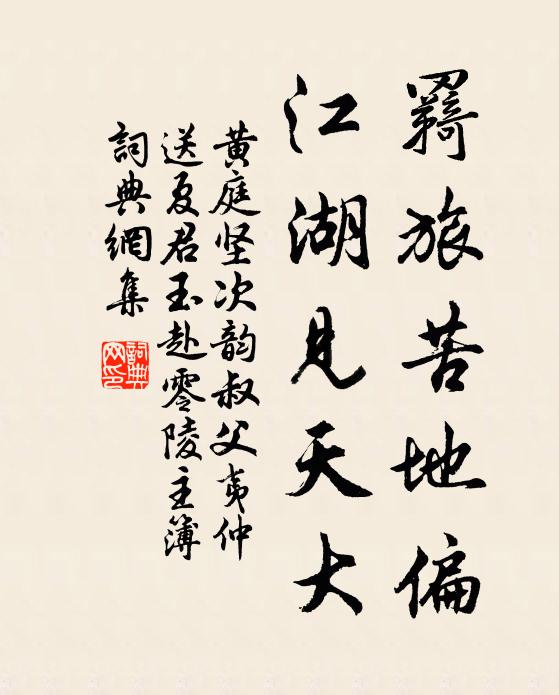 羇旅苦地偏
江湖見天大
黄庭坚次韵叔父夷仲
送夏君玉赴零陵主簿
詞典網集
詞典網印